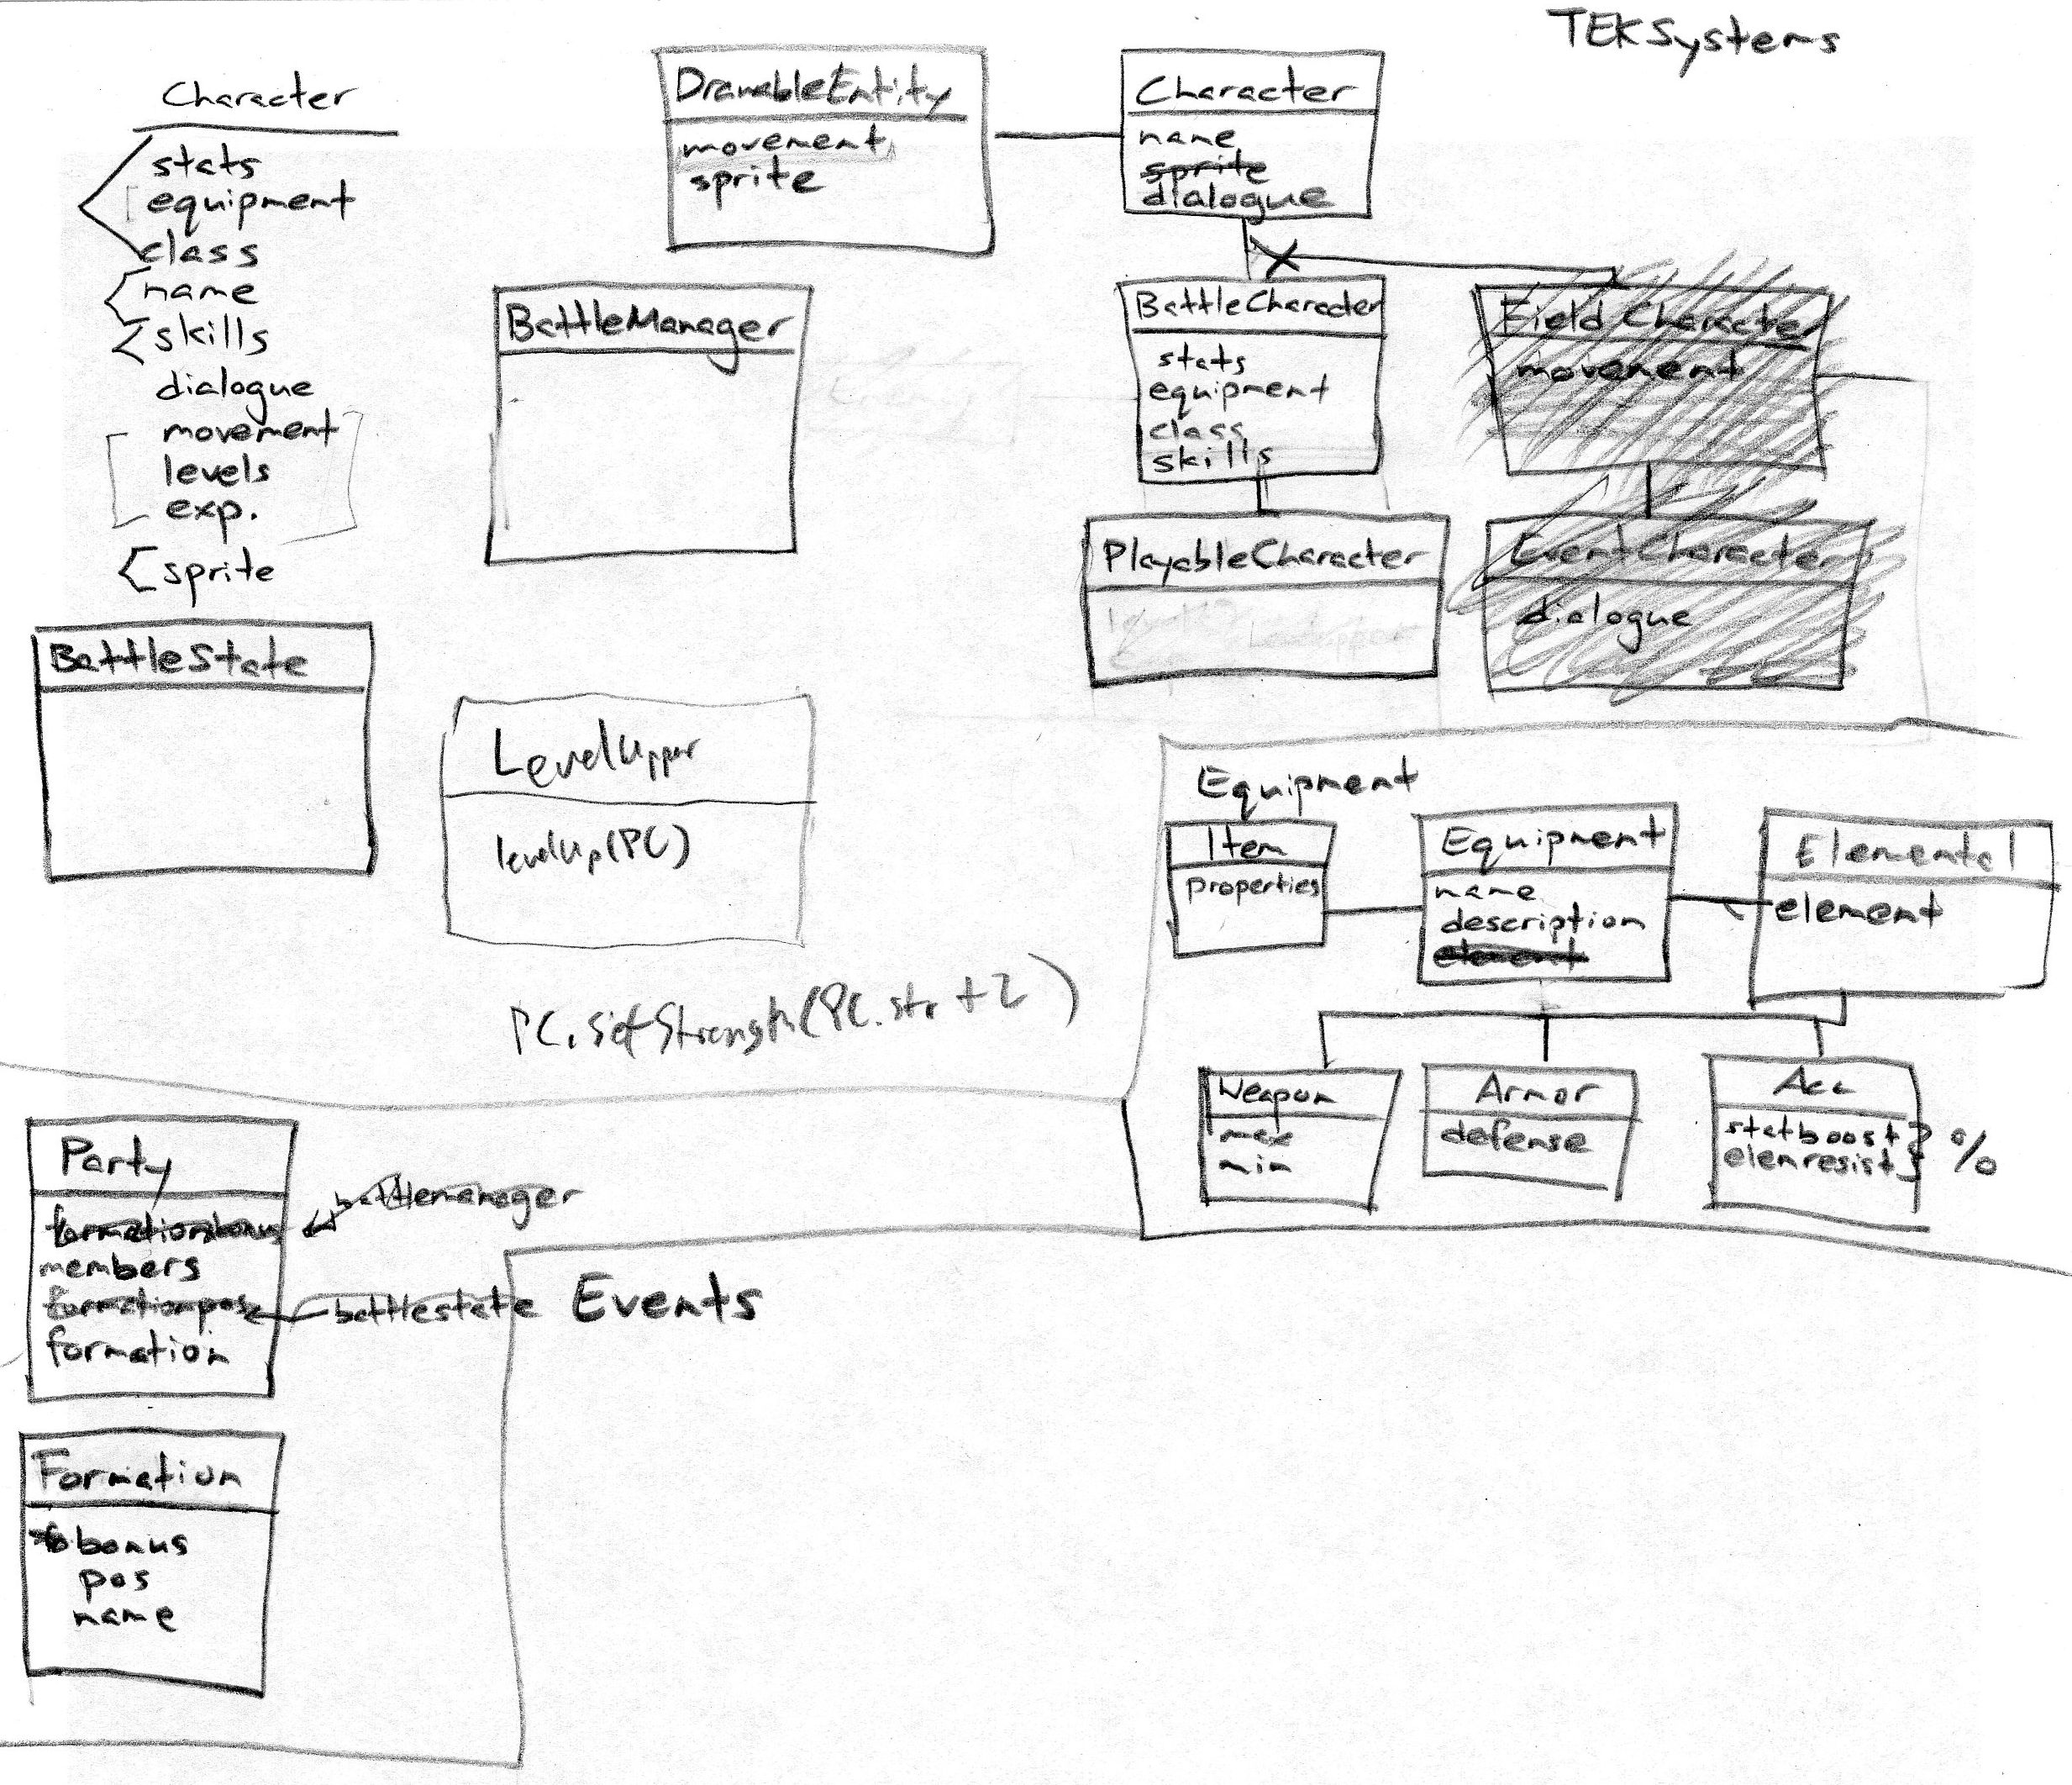 TEKSystems
Character
stats
equipment
class
name
skills
dialogue
movement
levels
exp.
sprite
DrawableEntity
movement
sprite
Character
name
sprite
dialogue
BattleManager
BattleCharacter
stats
equipment
class
skills
Field Character
movement
PlayableCharacter
EventCharacter
dialogue
BattleState
LevelUpper
levelUp(PC)
PC.setStrength(PC.str + 2)
Equipment
Item
properties
Equipment
name
description
element
Elemental
element
Weapon
max
min
Armor
defense
Acc
statboost
elemresist
%
Party
formationbonus
battlemanager
members
formationpos
battlestate
formation
Formation
bonus
pos
name
Events